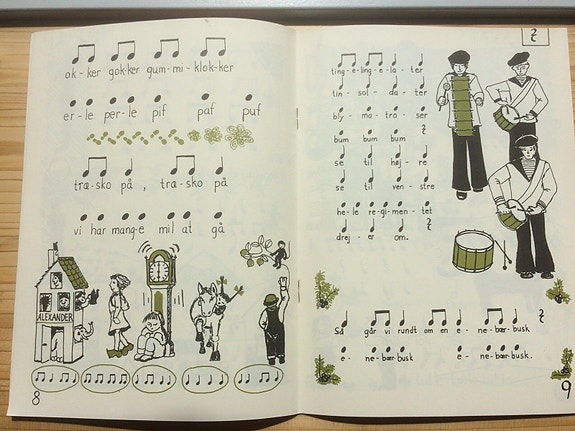 ok-ker gok-ker gum-mi-klok-ker
er-le per-le pif paf puf
træ-sko på, træ-sko på
vi har man-ge mil at gå
ALEXANDER
8
ting-e-ling-e-la-ter
tin-sol-da-ter
bly-ma-tro-ser
bum bum bum
se til høj-re
se til ven-stre
he-le re-gi-men-tet
drej-er om.
Så går vi rundt om en e-ne-bær-busk
e-ne-bær-busk e-ne-bær-busk.
9